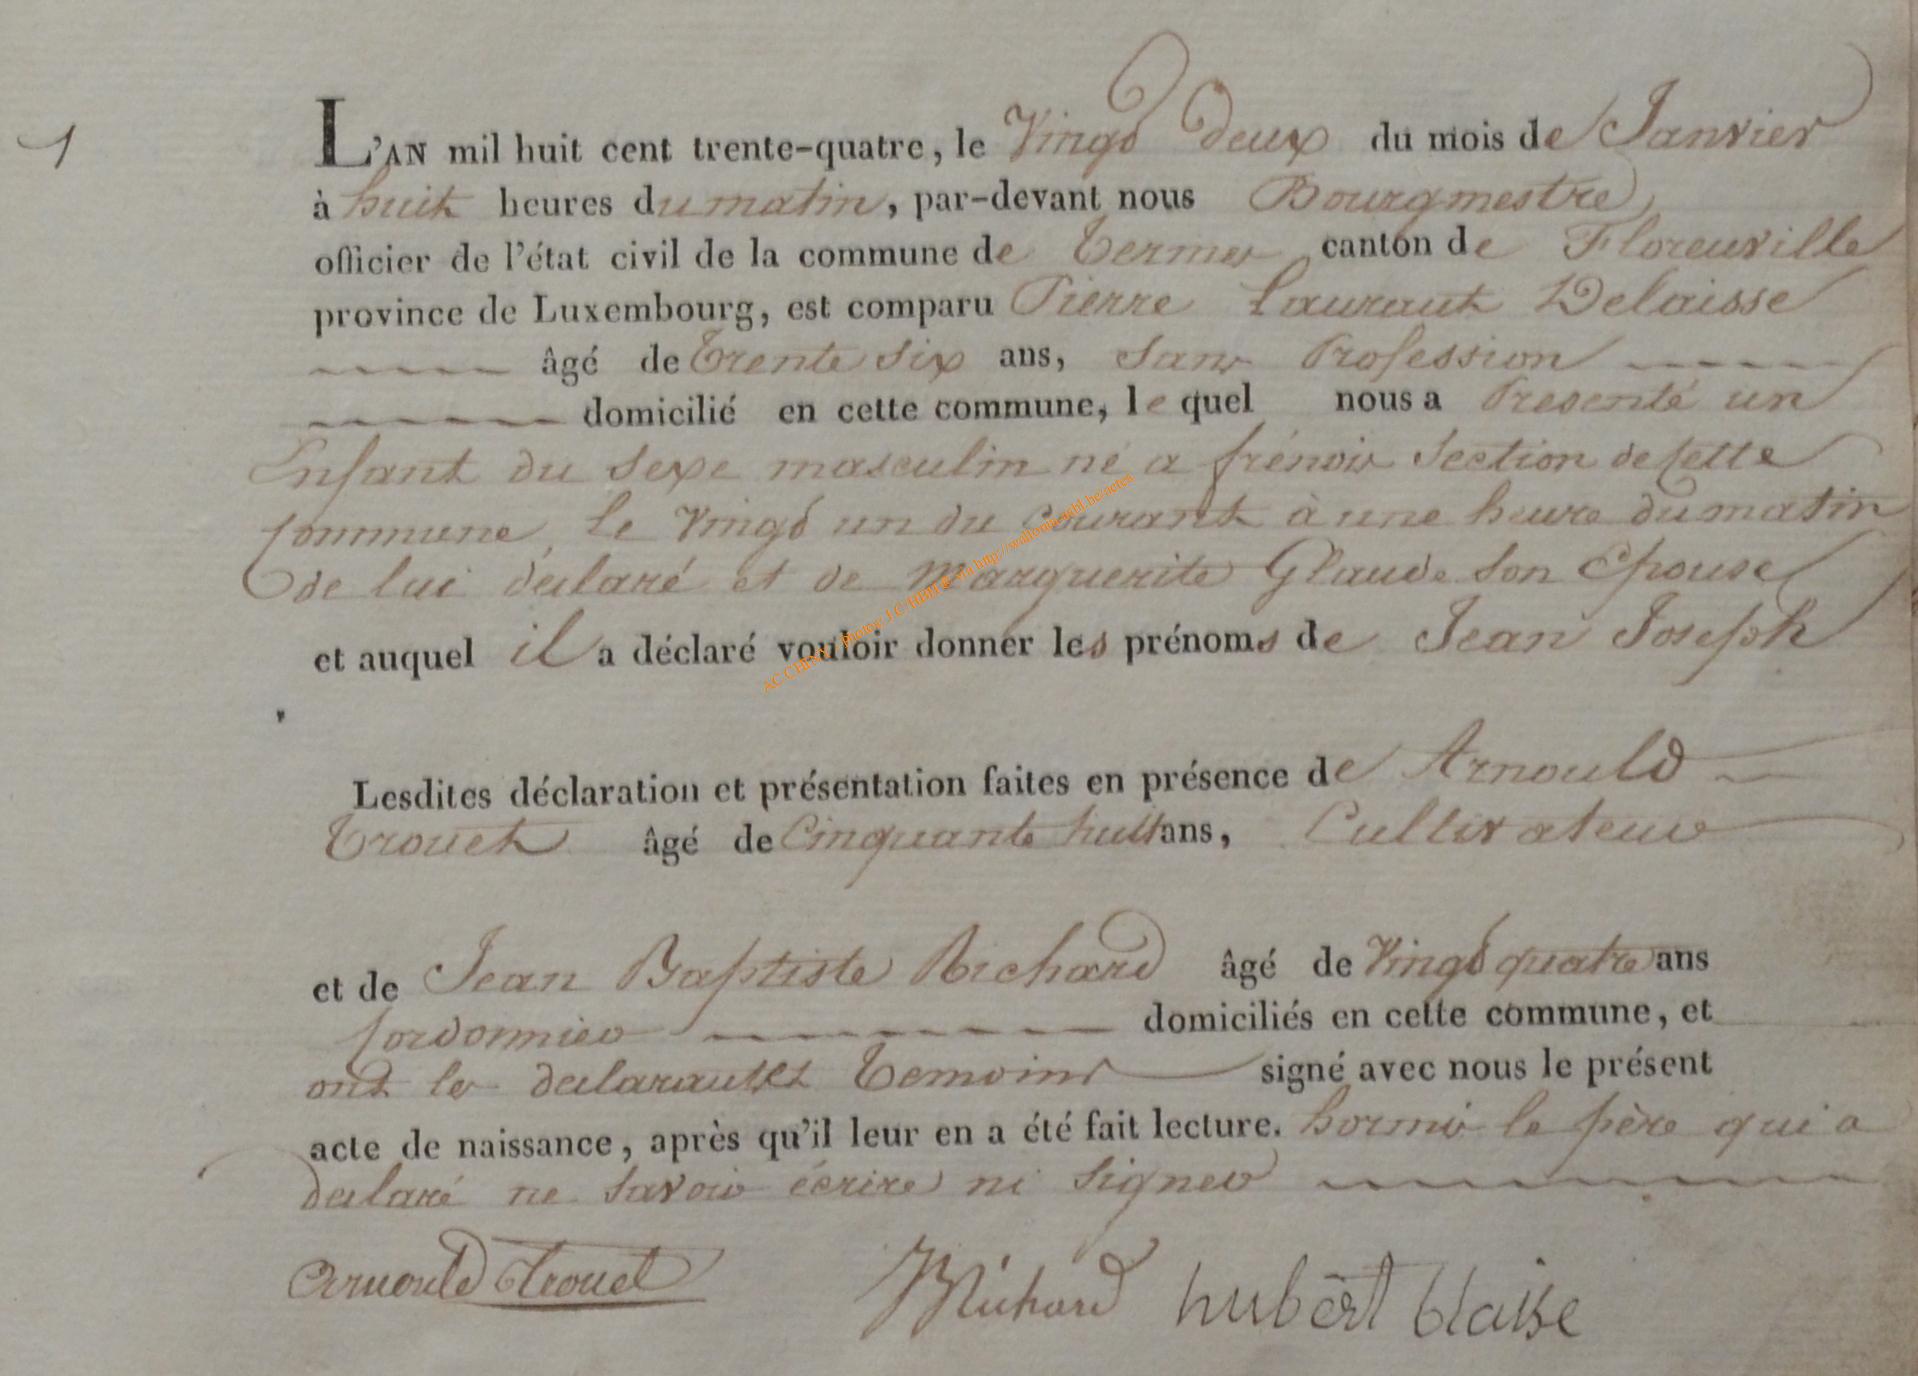 1
L'AN mil huit cent trente-quatre, le Vingt deux du mois de Janvier
à huit heures du matin, par-devant nous Bourgmestre
officier de l'état civil de la commune de Termes canton de Florenville
province de Luxembourg, est comparu Pierre Laurant Delaisse
âgé de Trente Six ans, Sans Profession
domicilié en cette commune, le quel nous a Presenté un
Enfant du Sexe masculin né a frénois Section de Cette
Commune, le Vingt un du Courant à une heure du matin
de lui declaré et de Marguerite Glaude Son Epouse
et auquel il a déclaré vouloir donner les prénoms de Jean Joseph
AC CHINY - photos: J.C. HBH via http://wallonica.be/actes
Lesdites déclaration et présentation faites en présence de Arnould
Trouet âgé de Cinquante huit ans, Cultivateur
et de Jean Baptiste Richard âgé de Vingt quatre ans
Cordonnier domiciliés en cette commune, et
ont les declarantes Temoins signé avec nous le présent
acte de naissance, après qu'il leur en a été fait lecture. hormis le père qui a
declaré ne Savoir écrire ni Signer
Arnould Trouet Richard hubert blaise